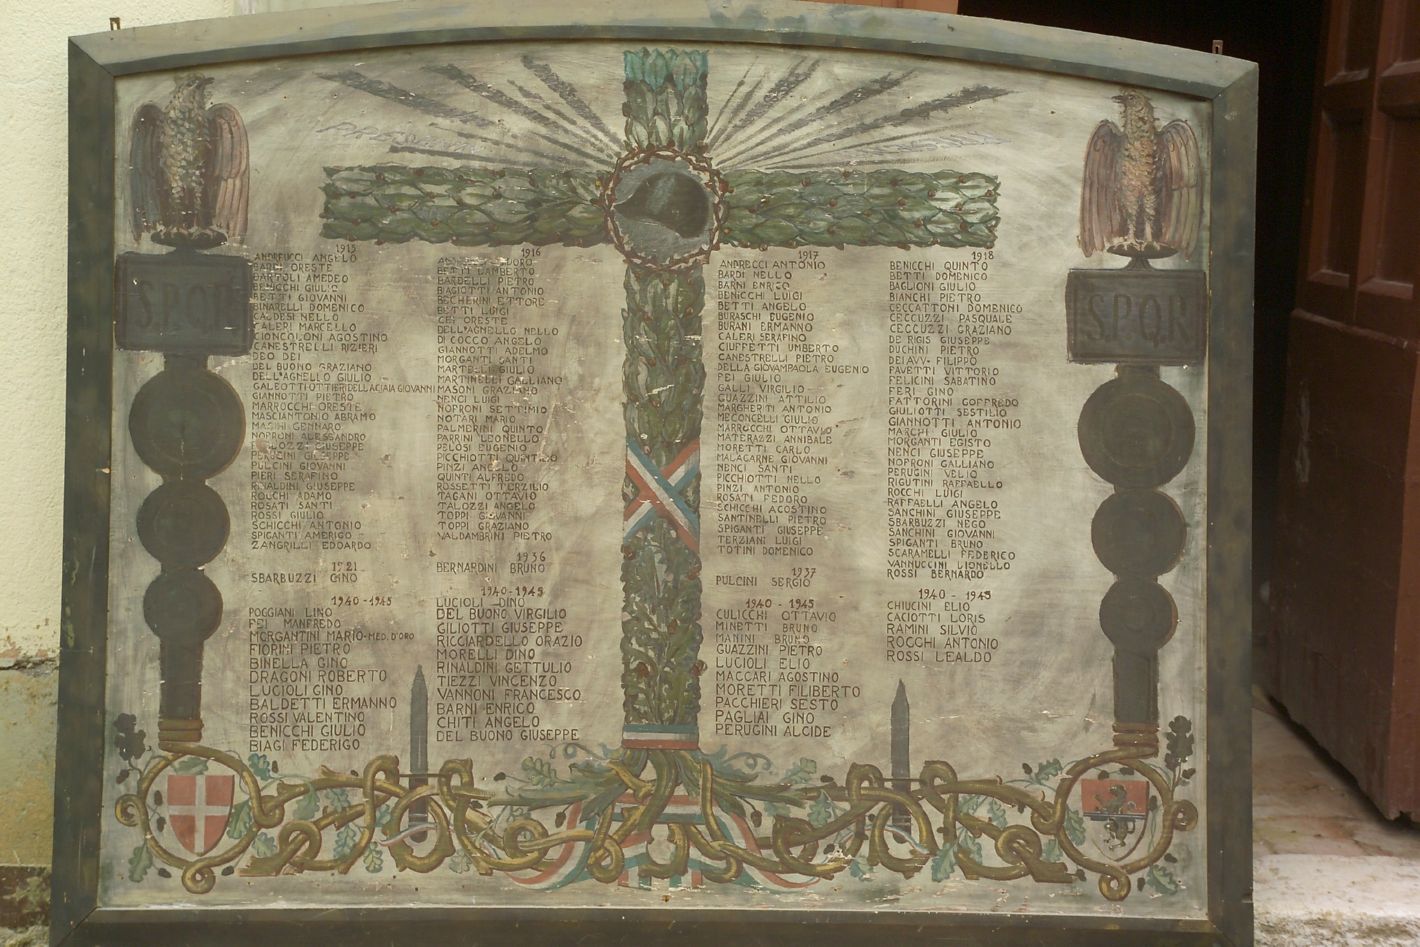 S.P.Q.R.
S.P.Q.R.
1915
ANDREUCCI ANGELO
BARDI ORESTE
BARTOLI AMEDEO
BENICCHI GIULIO
BETTI GIOVANNI
BINARELLI DOMENICO
CALDESI NELLO
CALERI MARCELLO
CIONCOLONI AGOSTINO
CANESTRELLI RIZIERI
DEO DEI
DEL BUONO GRAZIANO
DELL'AGNELLO GIULIO
GALEOTTI OTTIERI DELLA CIAIA GIOVANNI
GIANNOTTI PIETRO
MARROCCHI ORESTE
MASCIANTONIO ABRAMO
MASI GENNARO
NOFRONI ALESSANDRO
GIUSEPPE
PERUGINI GIUSEPPE
PULCINI GIOVANNI
PIERI SERAFINO
RINALDINI GIUSEPPE
ROCCHI ADAMO
ROSATI SANTI
ROSSI GIULIO
SCHICCHI ANTONIO
SPIGANTI AMERIGO
ZANGRILLI EDOARDO
1921
SBARBUZZI GINO
1940-1945
POGGIANI LINO
FEI MANFREDO
MORGANTINI MARIO-MED. D'ORO
FIORINI PIETRO
BINELLA GINO
DRAGONI ROBERTO
LUCIOLI GINO
BALDETTI ERMANNO
ROSSI VALENTINO
BENICCHI GIULIO
BIAGI FEDERIGO
1916
BETTI LAMBERTO
BARDELLI PIETRO
BIAGIOTTI ANTONIO
BECHERINI ETTORE
BETTI LUIGI
CEI ORESTE
DELL'AGNELLO NELLO
DI COCCO ANGELO
GIANNOTTI ADELMO
MORGANTI SANTI
MARTELLI GIUSEPPE
MARTINELLI GALLIANO
MASONI GRAZIANO
NENCI LUIGI
NOFRONI SETTIMIO
NOTARI MARIO
PALMERINI QUINTO
PARRINI LEONELLO
PELOSI EUGENIO
PICCHIOTTI QUINTILIO
PINZI ANGELO
QUINTI ALFREDO
ROSSETTI TERZILIO
TAGANI OTTAVIO
TALOZZI ANGELO
TOPPI GIOVANNI
TOPPI GRAZIANO
VALDAMBRINI PIETRO
1936
BERNARDINI BRUNO
1940-1945
LUCIOLI DINO
DEL BUONO VIRGILIO
GLIOTTI GIUSEPPE
RICCIARDELLO ORAZIO
MORELLI DINO
RINALDINI GETTULIO
TIEZZI VINCENZO
VANNONI FRANCESCO
BARNI ENRICO
CHITI ANGELO
DEL BUONO GIUSEPPE
1917
ANDRECCI ANTONIO
BARDI NELLO
BARNI ENRICO
BENICCHI LUIGI
BETTI ANGELO
BURASCHI EUGENIO
BURANI ERMANNO
CALERI SERAFINO
CIUFFETTI UMBERTO
CANESTRELLI PIETRO
DELLA GIOVAMPAOLA EUGENIO
FEI GIULIO
GALLI VIRGILIO
GUAZZINI ATTILIO
MARGHERITI ANTONIO
MECONCELLI GIULIO
MARROCCHI OTTAVIO
MATERAZZI ANNIBALE
MORETTI CARLO
MALAGARNE GIOVANNI
NENCI SANTI
PICCHIOTTI NELLO
PINZI ANTONIO
ROSATI FEDORO
SCHICCHI AGOSTINO
SANTINELLI PIETRO
SPIGANTI GIUSEPPE
TERZIANI LUIGI
TOTINI DOMENICO
1937
PULCINI SERGIO
1940-1945
CULICCHI OTTAVIO
MINETTI BRUNO
MANINI BRUNO
GUAZZINI PIETRO
LUCIOLI ELIO
MACCARI AGOSTINO
MORETTI FILIBERTO
PACCHIERI SESTO
PAGLIAI GINO
PERUGINI ALCIDE
1918
BENICCHI QUINTO
BETTI DOMENICO
BAGLIONI GIULIO
BIANCHI PIETRO
CECCATTONI DOMENICO
CECCUZZI PASQUALE
CECCUZZI GRAZIANO
DE RGIS GIUSEPPE
DUCHINI PIETRO
DEI AVV. FILIPPO
FAVETTI VITTORIO
FELICINI SABATINO
FERI GINO
FATTORINI GOFFREDO
GIULIOTTI SESTILIO
GIANNOTTI ANTONIO
MARCHI GIULIO
MORGANTI EGISTO
NENCI GIUSEPPE
NOFRONI GALLIANO
PERUGINI VELIO
PIETRINI RAFFAELLO
ROCCHI LUIGI
RAFFAELLI ANGELO
SANCHINI GIUSEPPE
SBARBUZZI NEGO
SANCHINI GIOVANNI
SPIGANTI BRUNO
SCARAMELLI FEDERICO
VANNUCCINI LIONELLO
ROSSI BERNARDO
1940-1945
CHIUCINI ELIO
CACIOTTI LORIS
RAMINI SILVIO
ROCCHI ANTONIO
ROSSI LEALDO